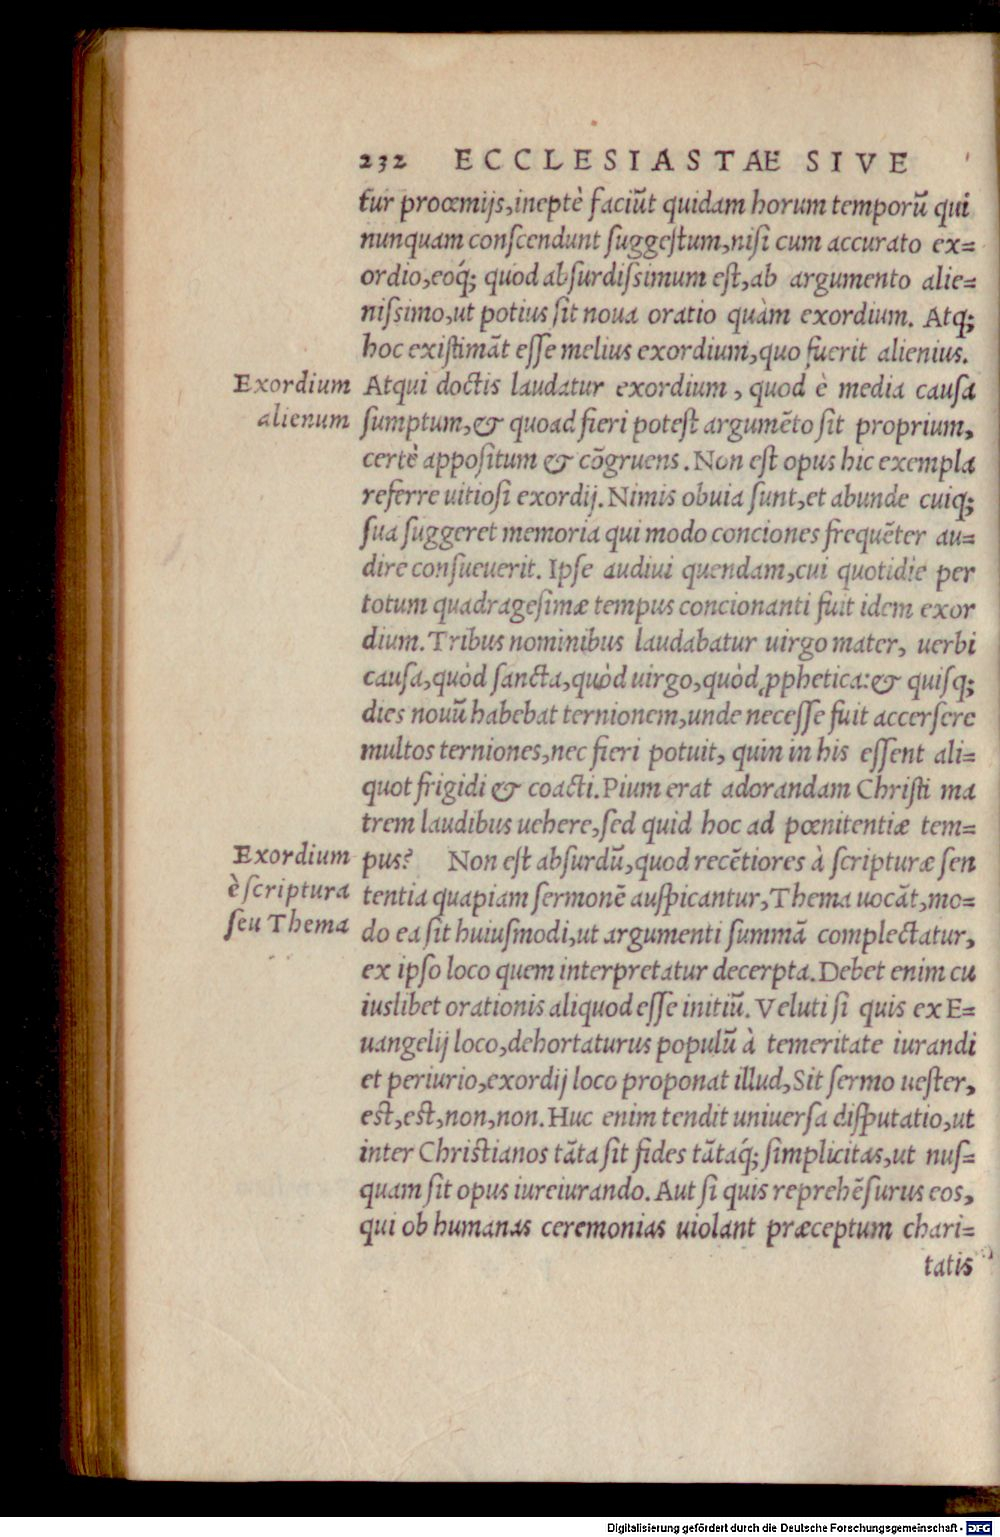 232 ECCLESIASTAE SIVE
tur proœmijs,ineptè faciūt quidam horum temporū qui
nunquam conſcendunt ſuggeſtum,niſi cum accurato ex=
ordio,eoq́; quod abſurdiſsimum eſt,ab argumento alie=
niſsimo,ut potius ſit noua oratio quàm exordium. Atq;
hoc exiſtimāt eſſe melius exordium,quo fuerit alienius.
Exordium alienum
Atqui doctis laudatur exordium, quod è media cauſa
ſumptum,& quoad fieri poteſt argumēto ſit proprium,
certè appoſitum & cōgruens. Non eſt opus hic exempla
referre uitioſi exordij. Nimis obuia ſunt,et abunde cuiq;
ſua ſuggeret memoria qui modo conciones frequēter au=
dire conſueuerit. Ipſe audiui quendam,cui quotidie per
totum quadrageſimæ tempus concionanti fuit idem exor
dium. Tribus nominibus laudabatur uirgo mater, uerbi
cauſa,quòd ſancta,quòd uirgo,quòd ꝓphetica:& quiſq;
dies nouū habebat ternionem,unde neceſſe fuit accerſere
multos terniones,nec fieri potuit, quin in his eſſent ali=
quot frigidi & coacti. Pium erat adorandam Chriſti ma
trem laudibus uehere,ſed quid hoc ad pœnitentiæ tem=
Exordium
è ſcriptura
ſeu Thema
pus? Non eſt abſurdū,quod recētiores à ſcripturæ ſen
tentia quapiam ſermonē auſpicantur,Thema uocāt,mo=
do ea ſit huiuſmodi,ut argumenti ſummā complectatur,
ex ipſo loco quem interpretatur decerpta. Debet enim cu
iuslibet orationis aliquod eſſe initiū. Veluti ſi quis ex E=
uangelij loco,dehortaturus populū à temeritate iurandi
et periurio,exordij loco proponat illud,Sit ſermo ueſter,
eſt,eſt,non,non. Huc enim tendit uniuerſa diſputatio,ut
inter Chriſtianos tāta ſit fides tātaq́; ſimplicitas,ut nuſ=
quam ſit opus iureiurando. Aut ſi quis reprehēſurus eos,
qui ob humanas ceremonias uiolant præceptum chari=
tatis
Digitalisierung gefördert durch die Deutsche Forschungsgemeinschaft - DFG